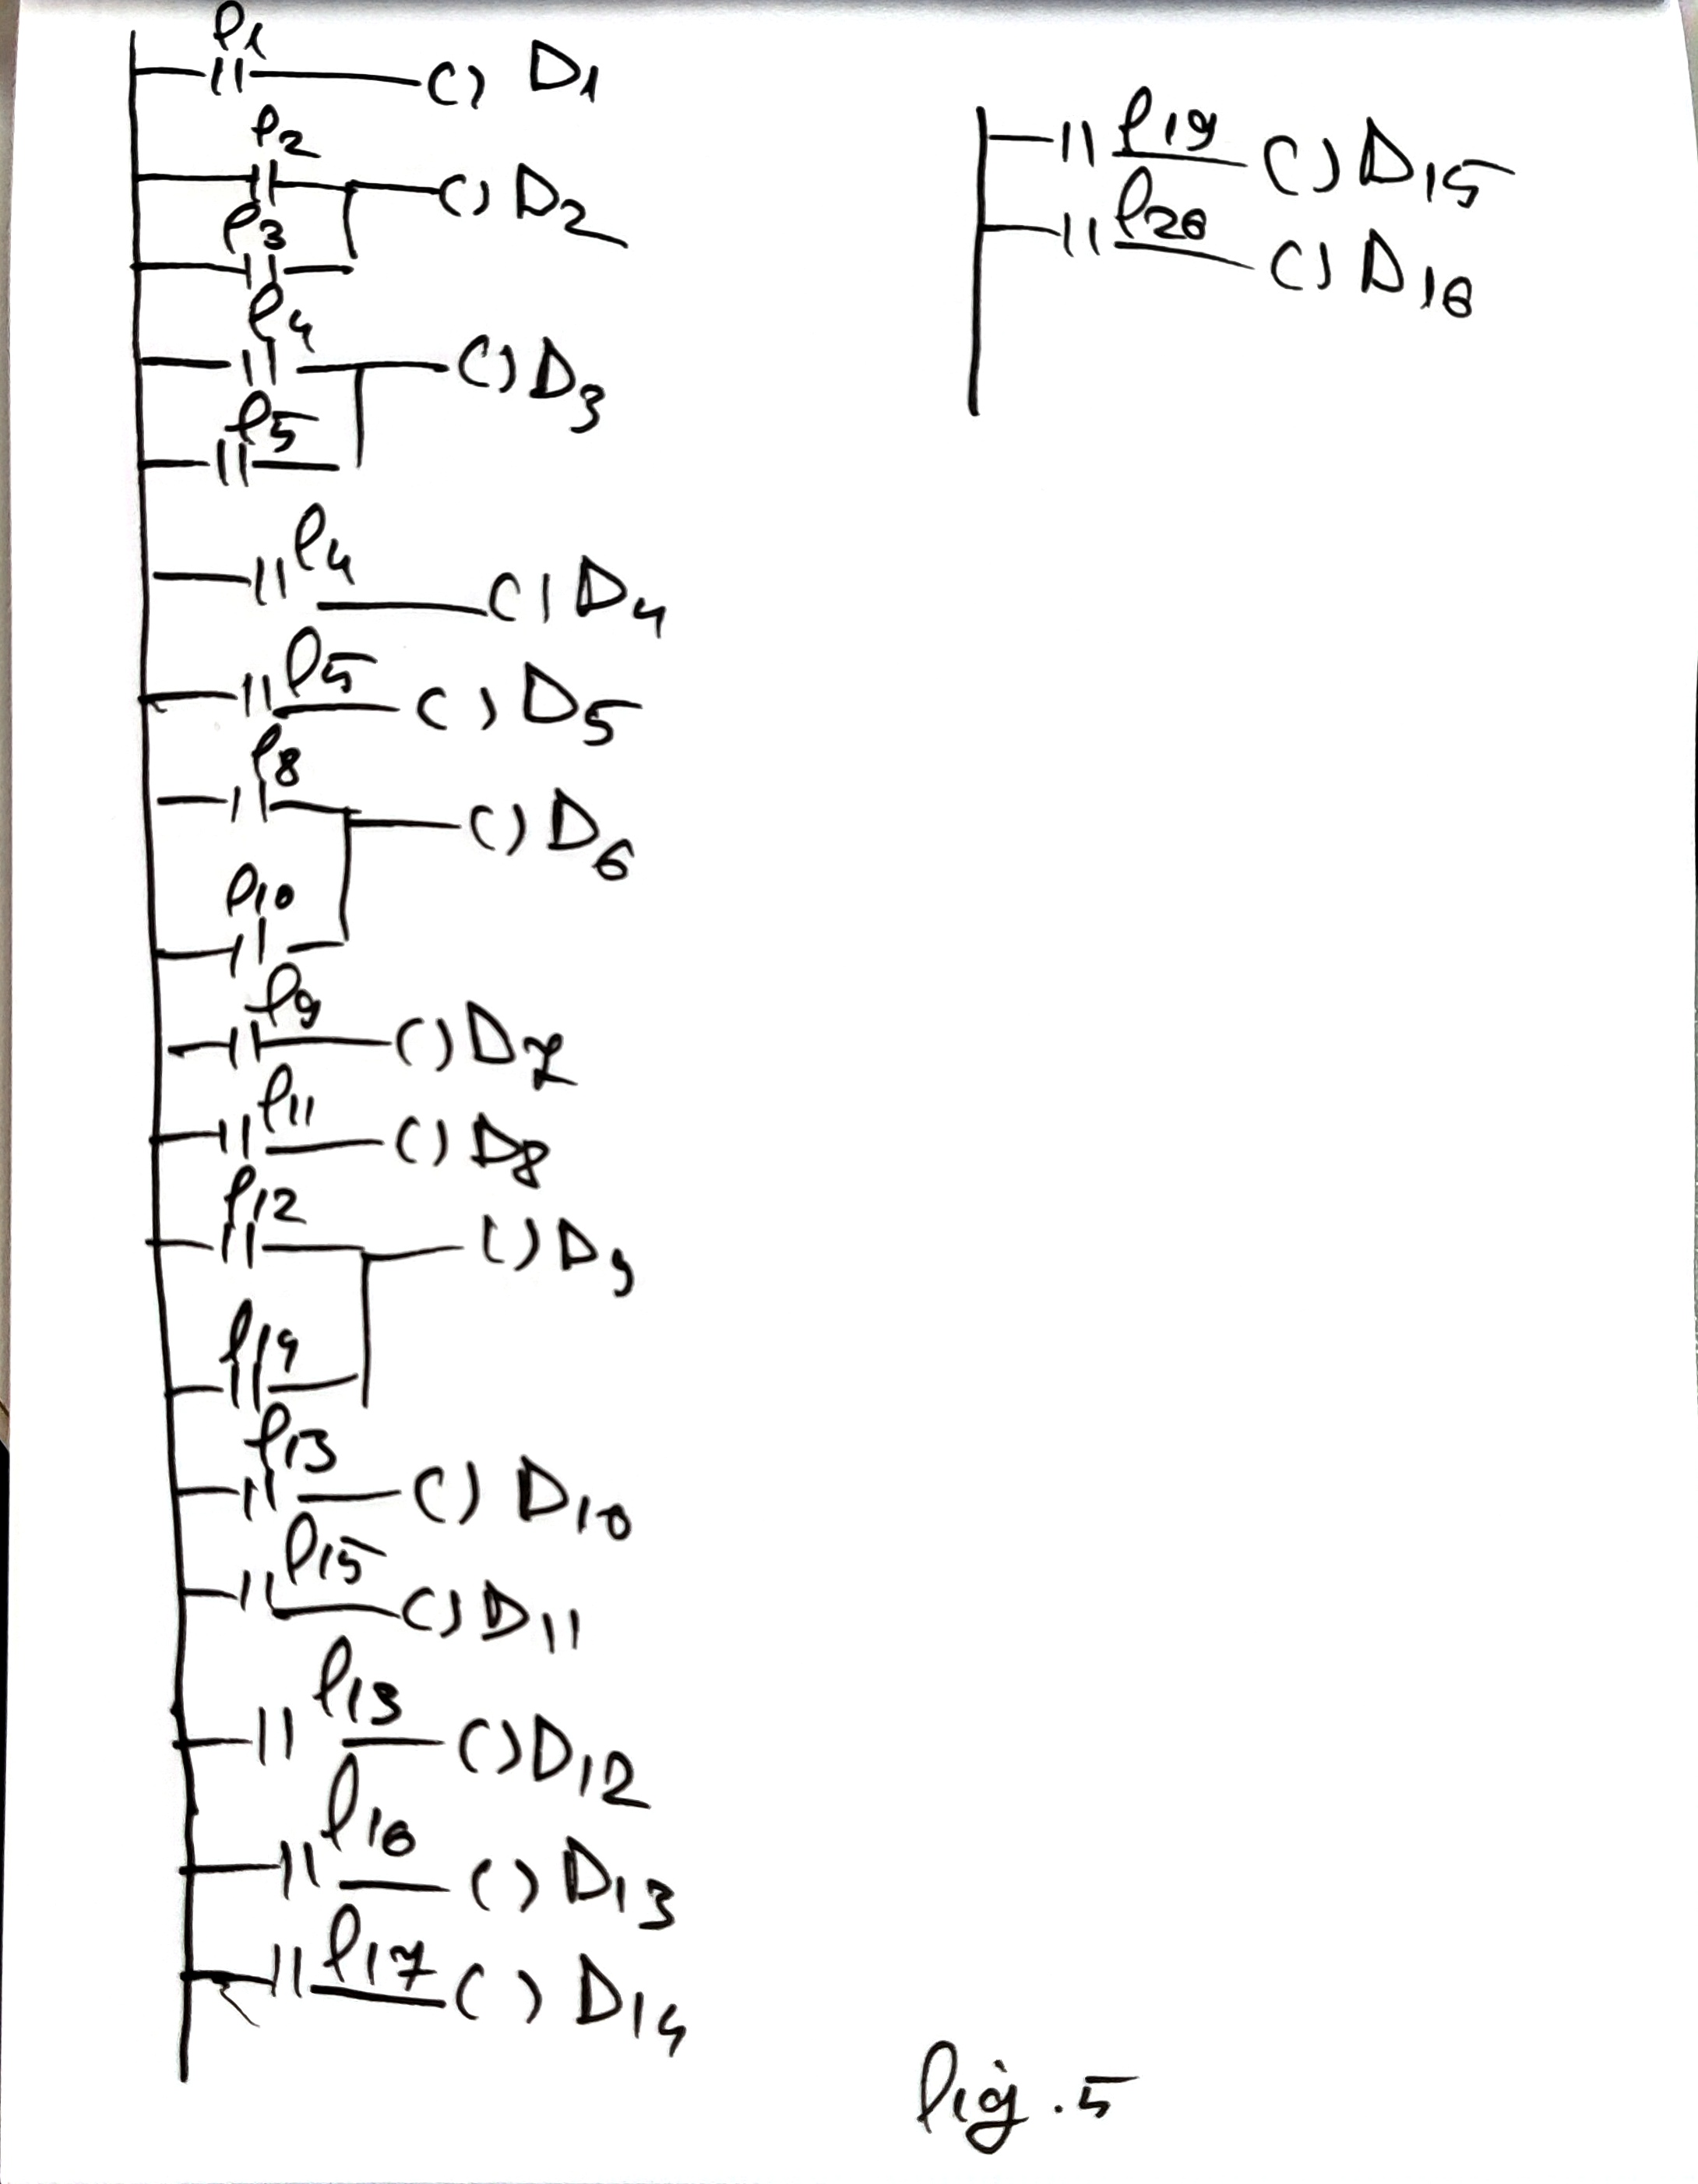 P1
( ) D1
P2
( ) D2
P3
P4
( ) D3
P5
P4
( ) D4
P5
( ) D5
P8
( ) D6
P10
P9
( ) D7
P11
( ) D8
P12
( ) D9
P14
P13
( ) D10
P15
( ) D11
P13
( ) D12
P16
( ) D13
P17
( ) D14
P19
( ) D15
P20
( ) D16
fig. 5